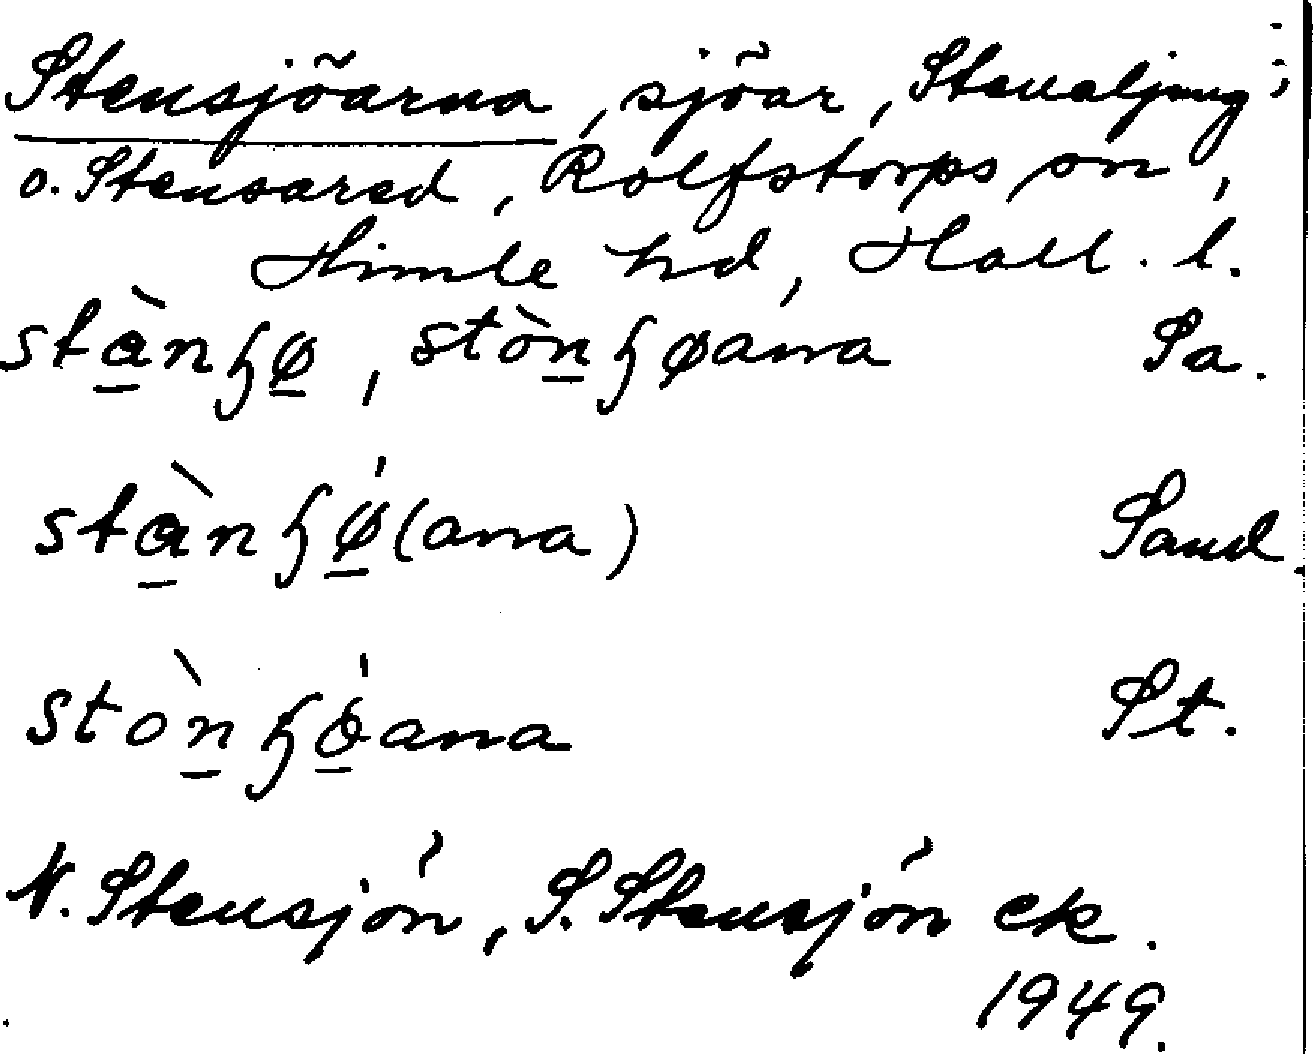 Stensjöarna, sjöar, Stenaljung
o. Stensared, Rolfstorps sn,
Himle hd, Hall. l.
stànɧø, stònɧøana Sa.
stànɧø(ana) Sand.
stònɧöana St.
N. Stensjön, S. Stensjön ek.
1949.